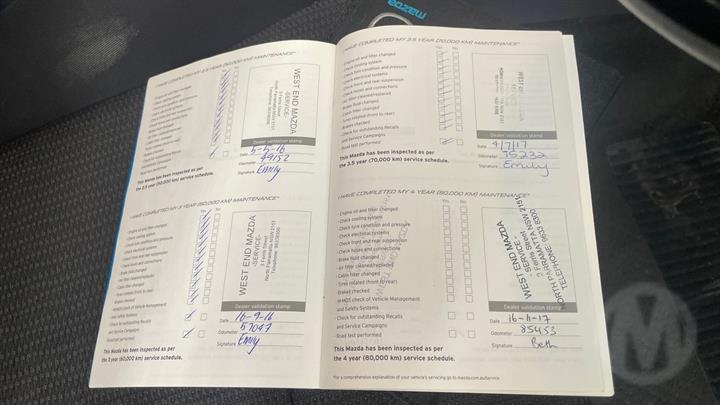 mazda
I HAVE COMPLETED MY 2.5 YEAR (50,000 KM) MAINTENANCE*
Yes No
WEST END MAZDA
-SERVICE-
Dealer validation stamp
Date 5-5-16
Odometer 49152
Signature Emily
This Mazda has been inspected as per
the 2.5 year (50,000 km) service schedule.
I HAVE COMPLETED MY 3 YEAR (60,000 KM) MAINTENANCE*
Yes No
- Engine oil and filter changed
- Check cooling system
- Check tyre condition and pressure
- Check electrical systems
- Check front and rear suspension
- Check hoses and connections
- Brake fluid changed
- Air filter cleaned/replaced
- Cabin filter changed
- Tyres rotated (front to rear)
- Brakes checked
- M-MDS check of Vehicle Management
and Safety Systems
- Check for outstanding Recalls
and Service Campaigns
- Road test performed
WEST END MAZDA
-SERVICE-
2 Ferris Street
North Parramatta NSW 2151
Dealer validation stamp
Date 16-9-16
Odometer 57047
Signature Emily
This Mazda has been inspected as per
the 3 year (60,000 km) service schedule.
I HAVE COMPLETED MY 3.5 YEAR (70,000 KM) MAINTENANCE*
Yes No
- Engine oil and filter changed
- Check cooling system
- Check tyre condition and pressure
- Check electrical systems
- Check front and rear suspension
- Check hoses and connections
- Air filter cleaned/replaced
- Brake fluid changed
- Cabin filter changed
- Tyres rotated (front to rear)
- Brakes checked
- Check for outstanding Recalls
and Service Campaigns
- Road test performed
Dealer validation stamp
Date 4/7/17
Odometer 75232
Signature Emily
This Mazda has been inspected as per
the 3.5 year (70,000 km) service schedule.
I HAVE COMPLETED MY 4 YEAR (80,000 KM) MAINTENANCE*
Yes No
- Engine oil and filter changed
- Check cooling system
- Check tyre condition and pressure
- Check electrical systems
- Check front and rear suspension
- Check hoses and connections
- Brake fluid changed
- Air filter cleaned/replaced
- Cabin filter changed
- Tyres rotated (front to rear)
- Brakes checked
- M-MDS check of Vehicle Management
and Safety Systems
- Check for outstanding Recalls
and Service Campaigns
- Road test performed
WEST END MAZDA
- SERVICE -
NORTH PARRAMATTA NSW 2151
TELEPHONE
Dealer validation stamp
Date 16-11-17
Odometer 85453
Signature Beth
This Mazda has been inspected as per
the 4 year (80,000 km) service schedule.
*For a comprehensive explanation of your vehicle's servicing go to mazda.com.au/service